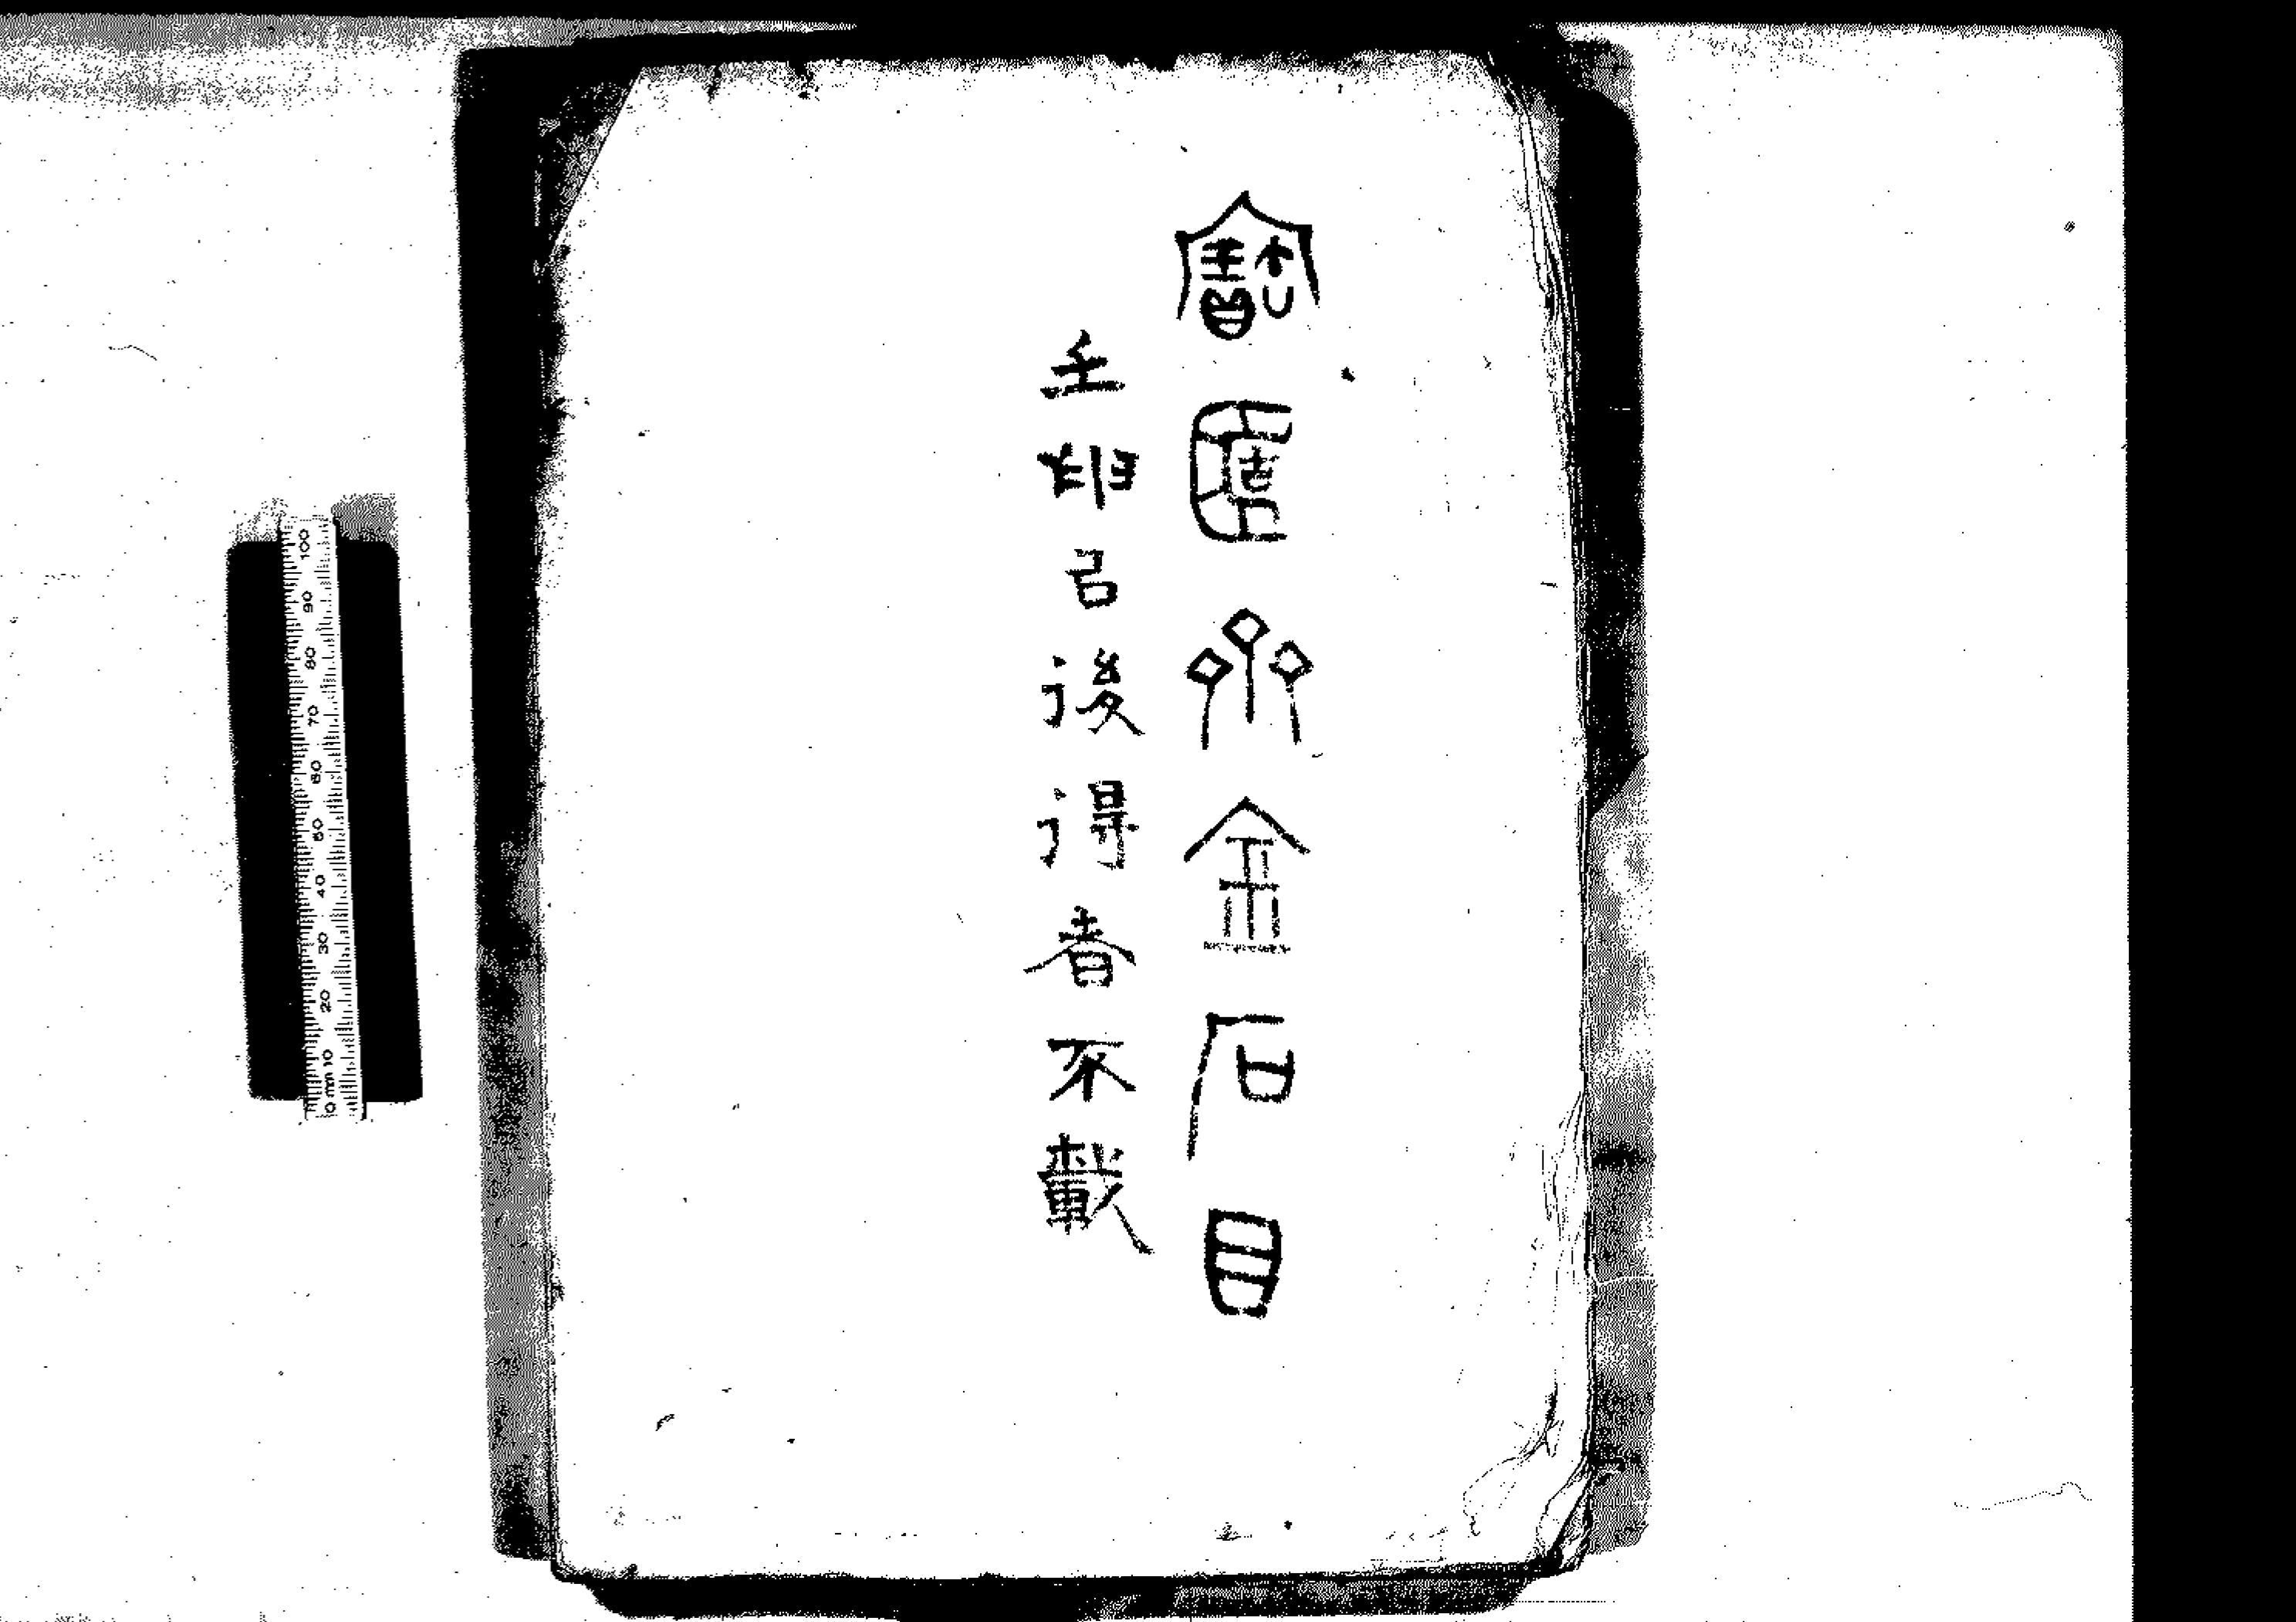 寶𠤳齊金石目
壬申㠯後得者不載
0 mm 10 20 30 40 50 60 70 80 90 100